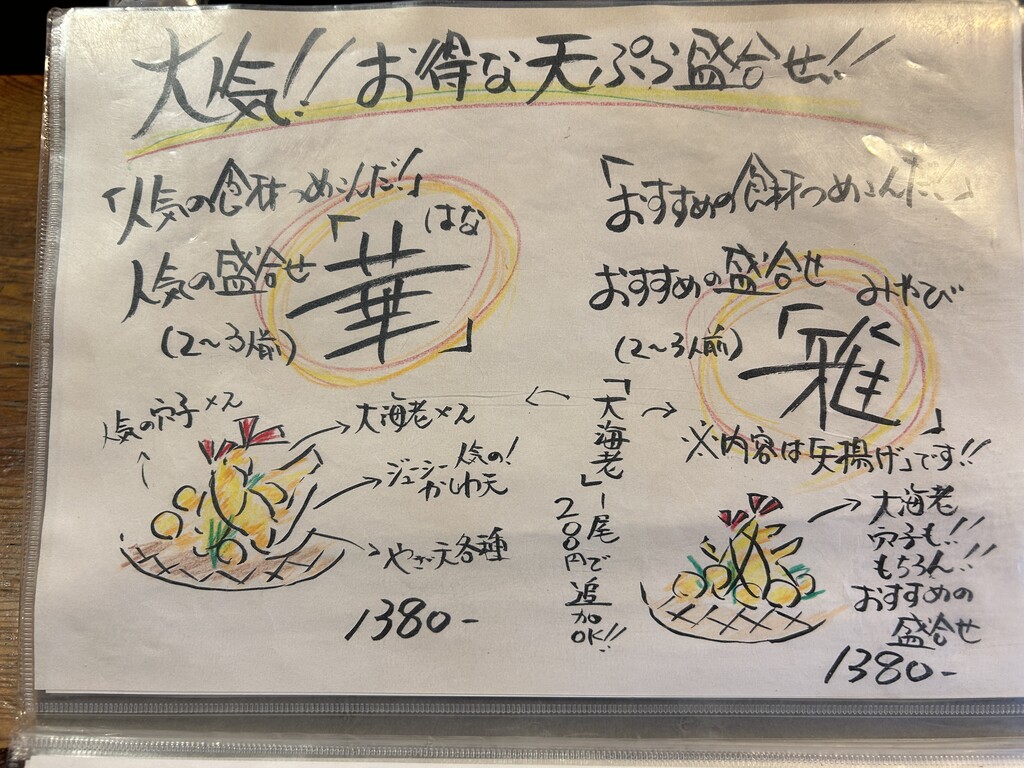 人気!! お得な天ぷら盛合せ!!
「人気の食材つめこんだ!」
人気の盛合せ
(2〜3人前)
「華」
はな
人気の穴子天
大海老天
ジューシー人気の!
かしわ天
やさい天各種
1380-
「おすすめの食材つめこんだ!」
おすすめの盛合せ
(2〜3人前)
みやび
「雅」
※内容は「天揚げ」です!!
「大海老」一尾で
200円で追加OK!!
大海老
穴子も!!
もちろん!!
おすすめの
盛合せ
1380-